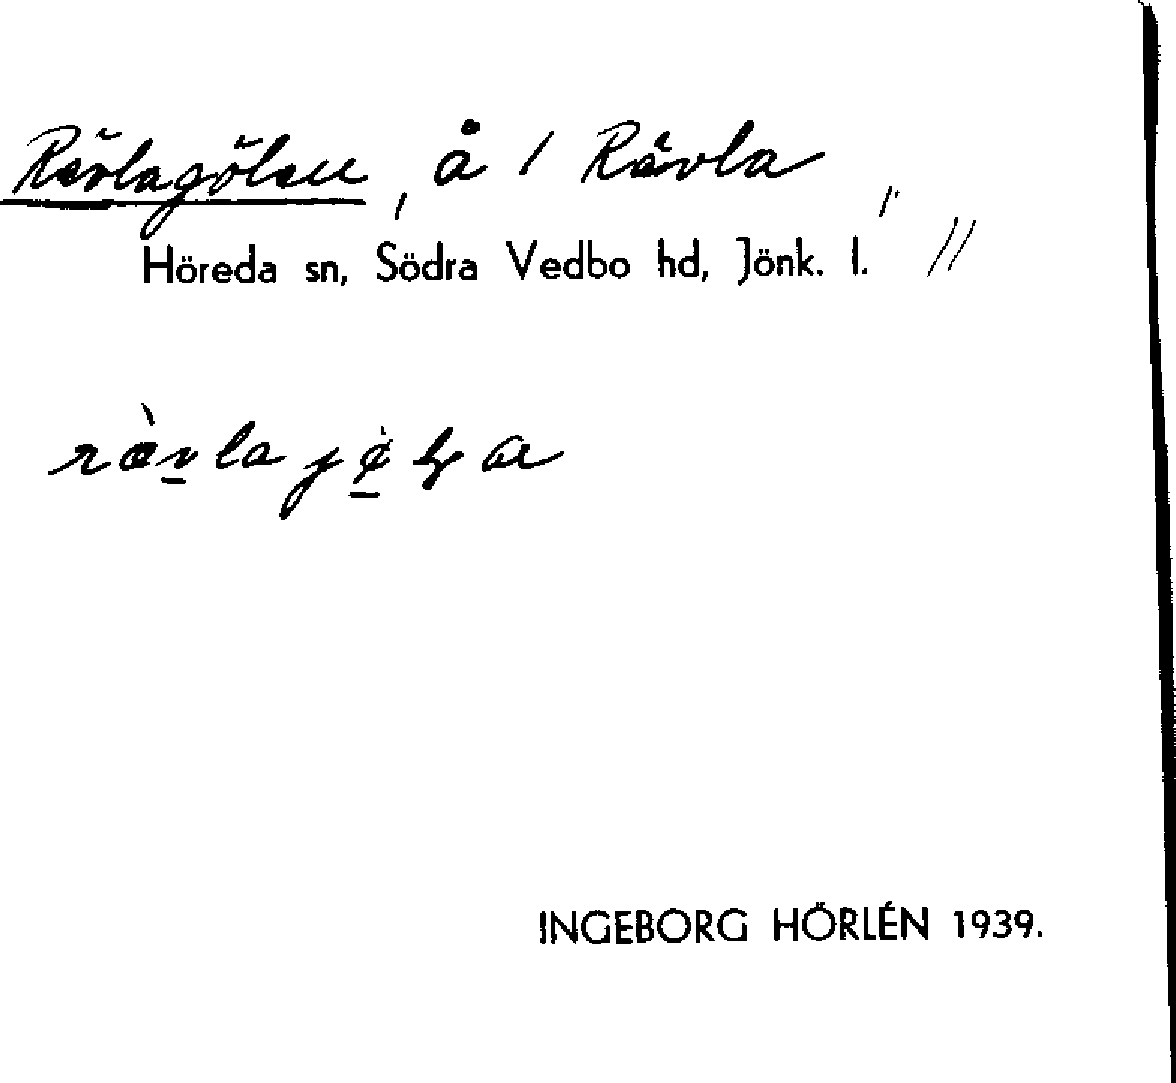 Rävlagölen, å 1 Rävla,
Höreda sn, Södra Vedbo hd, Jönk. l. //
INGEBORG HÖRLÉN 1939.